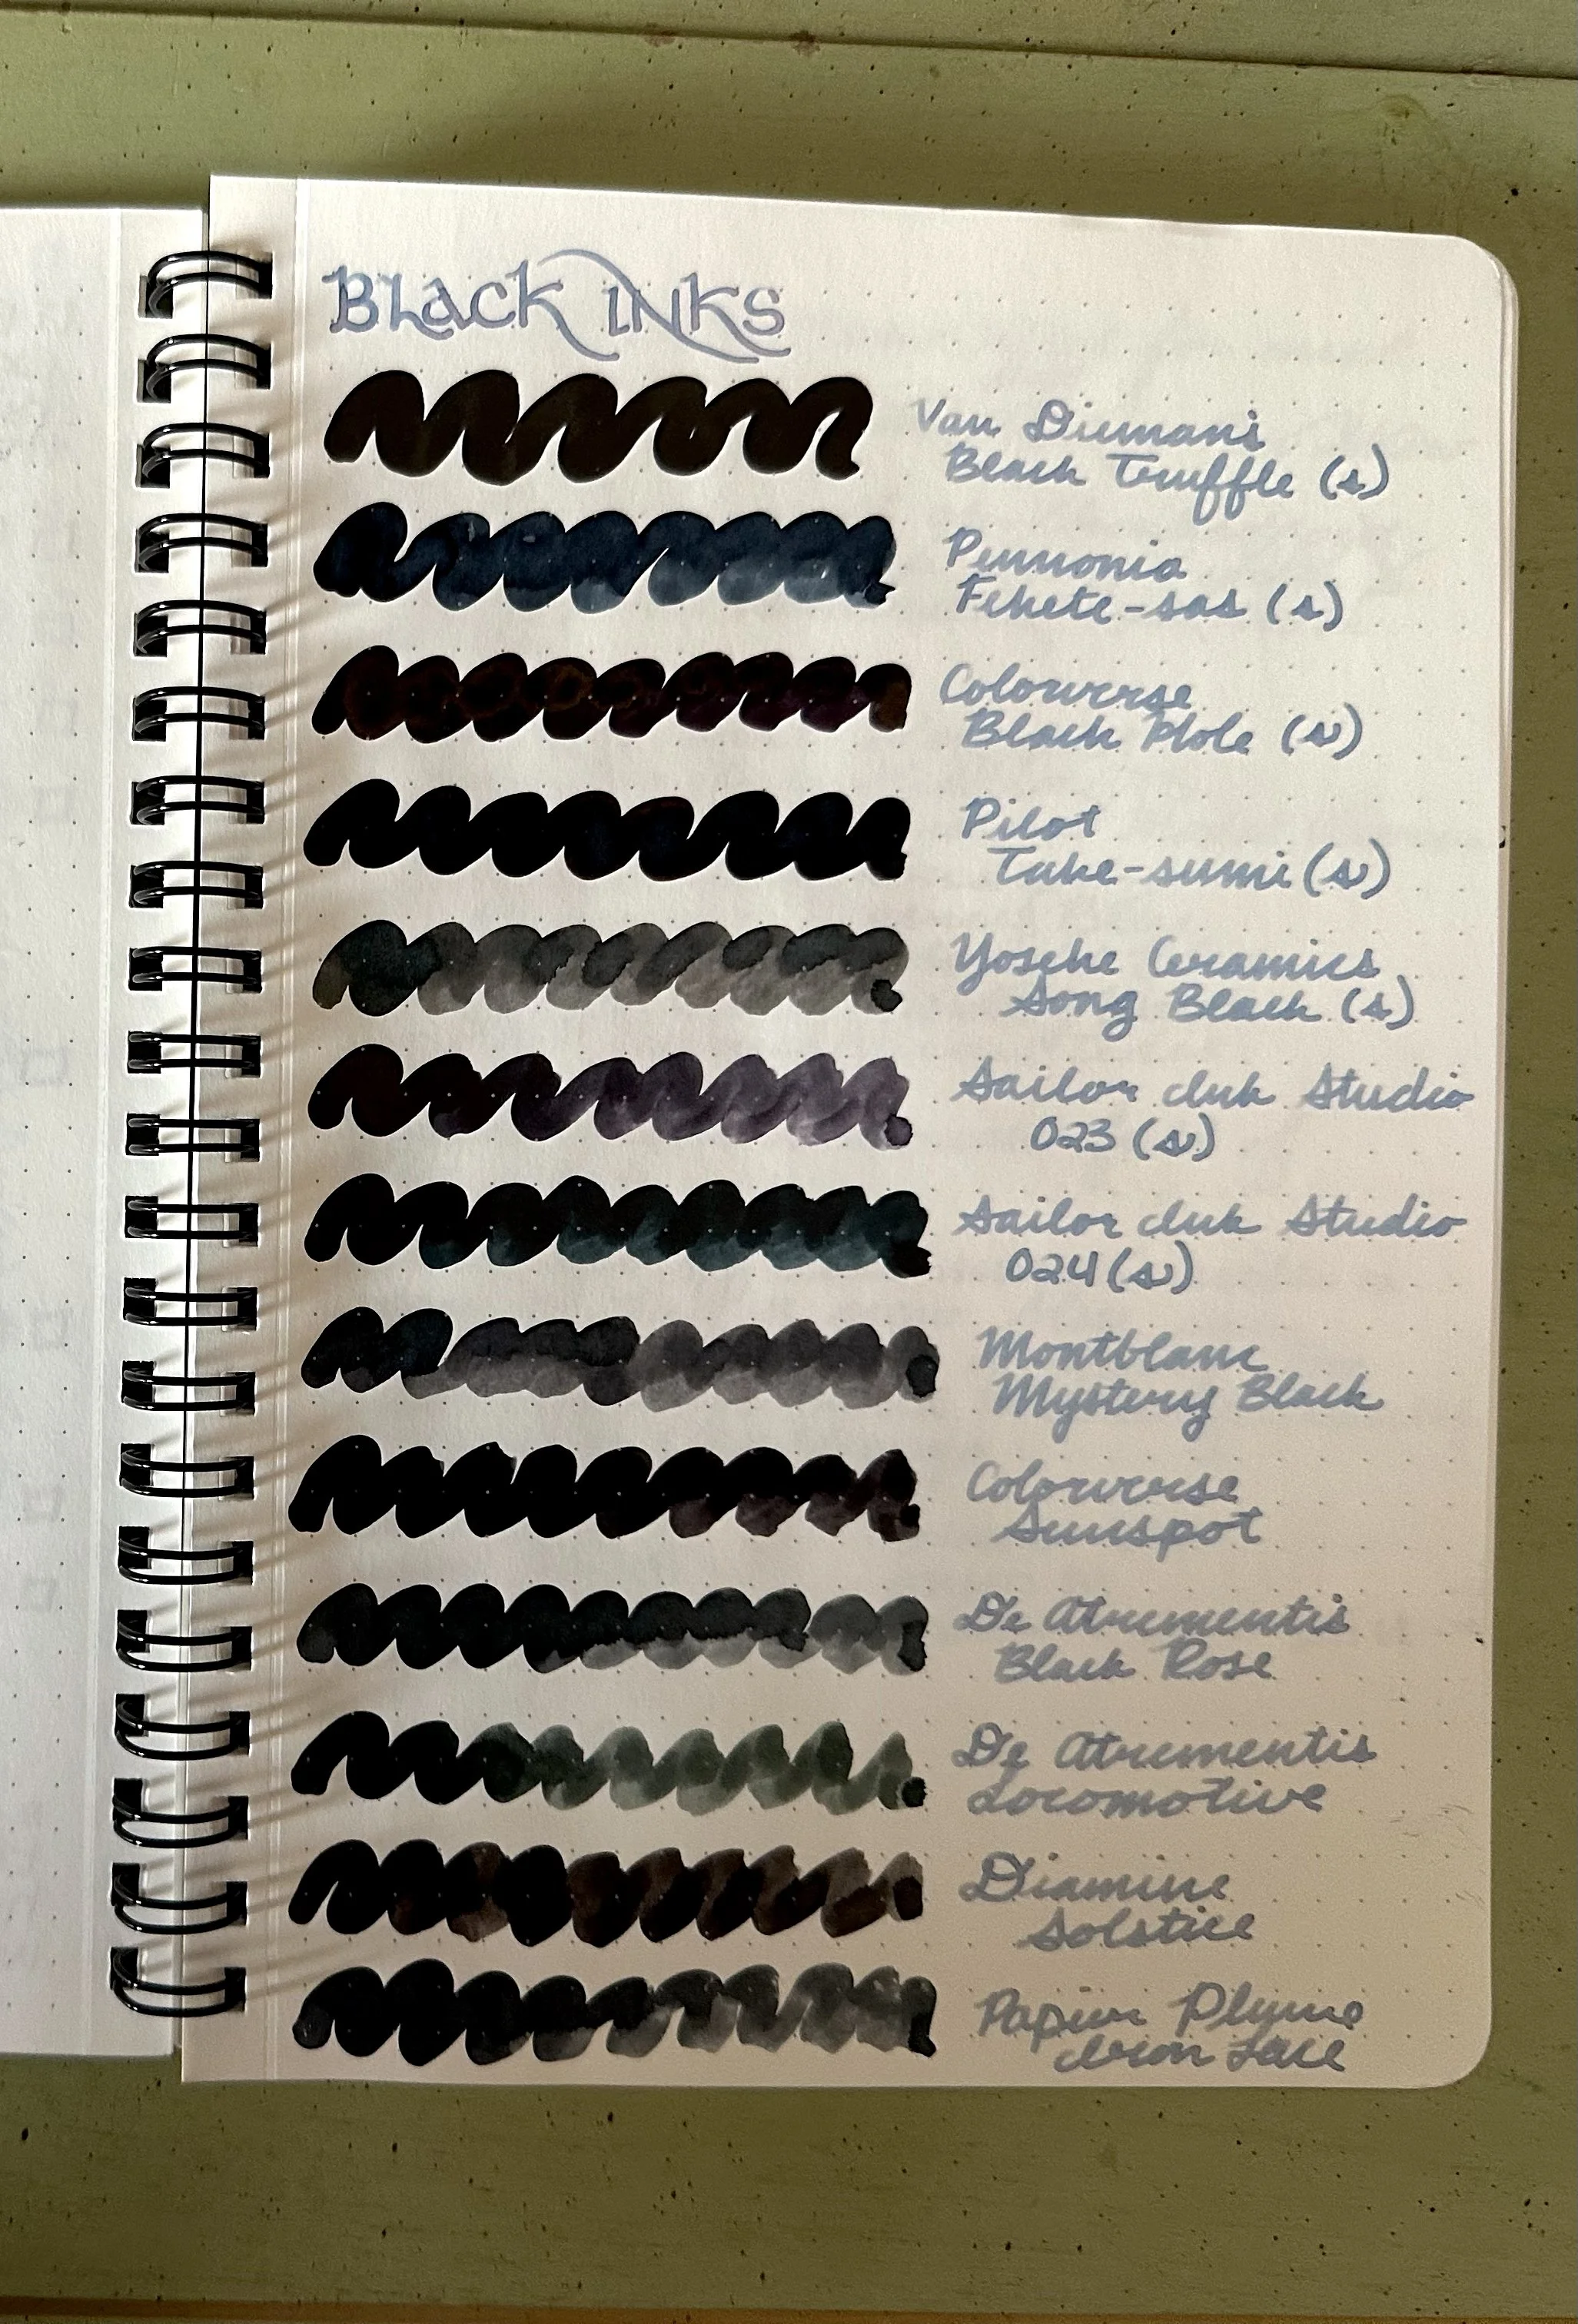 Black Inks
Van Diemans
Black Truffle (s)
Pennonia
Fekete-sas (s)
Colorverse
Black Hole (s)
Pilot
Take-sumi (s)
Yoseke Ceramics
Song Black (s)
Sailor Ink Studio
023 (s)
Sailor Ink Studio
024 (s)
Montblanc
Mystery Black
Colorverse
Sunspot
De Atrementis
Black Rose
De Atrementis
Locomotive
Diamine
Solstice
Papier Plume
Iron Lace